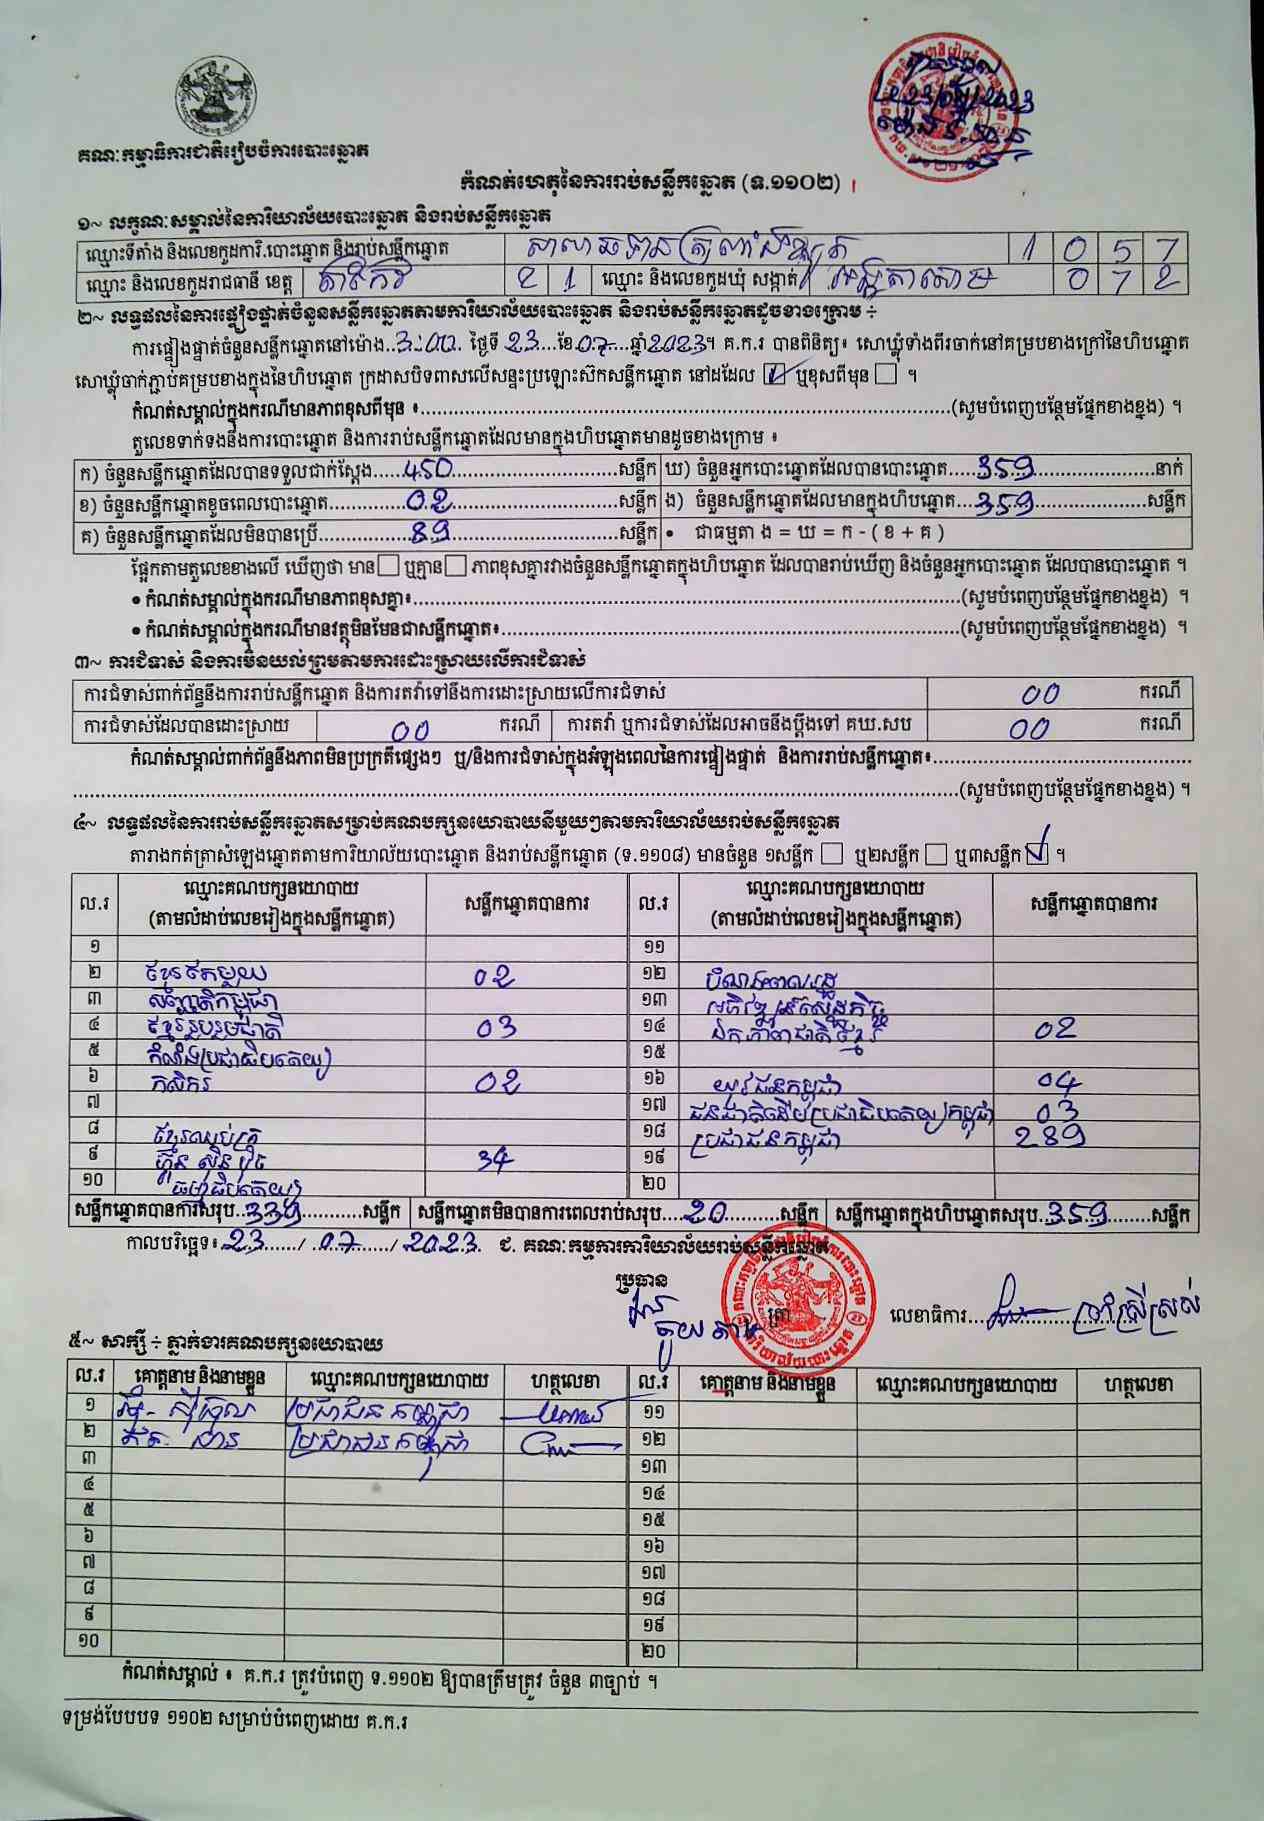 គណៈកម្មាធិការជាតិរៀបចំការបោះឆ្នោត
23/07/2023
កំណត់ហេតុនៃការរាប់សន្លឹកឆ្នោត (ទ.១១០២)
១~ លក្ខណៈសម្គាល់នៃការិយាល័យបោះឆ្នោត និងរាប់សន្លឹកឆ្នោត
ឈ្មោះទីតាំង និងលេខកូដការិ.បោះឆ្នោត និងរាប់សន្លឹកឆ្នោត 1 0 5 7
ឈ្មោះ និងលេខកូដរាជធានី ខេត្ត តាកែវ 2 1 ឈ្មោះ និងលេខកូដឃុំ សង្កាត់ អង្គតាសោម 0 7 2
២~ លទ្ធផលនៃការផ្ទៀងផ្ទាត់ចំនួនសន្លឹកឆ្នោតតាមការិយាល័យបោះឆ្នោត និងរាប់សន្លឹកឆ្នោតដូចខាងក្រោម ÷
ការផ្ទៀងផ្ទាត់ចំនួនសន្លឹកឆ្នោតនៅម៉ោង 3:00 ថ្ងៃទី 23 ខែ 07 ឆ្នាំ 2023 ។ គ.ក.រ បានពិនិត្យ៖ សោឃ្លុំទាំងពីរចាក់នៅគម្របខាងក្រៅនៃហិបឆ្នោត
សោឃ្លុំចាក់ភ្ជាប់គម្របខាងក្នុងនៃហិបឆ្នោត ក្រដាសបិទពាសលើសន្ទះប្រឡោះស៊កសន្លឹកឆ្នោត នៅដដែល ☑ ឬខុសពីមុន ☐ ។
កំណត់សម្គាល់ក្នុងករណីមានភាពខុសពីមុន ៖ (សូមបំពេញបន្ថែមផ្នែកខាងខ្នង) ។
តួលេខទាក់ទងនឹងការបោះឆ្នោត និងការរាប់សន្លឹកឆ្នោតដែលមានក្នុងហិបឆ្នោតមានដូចខាងក្រោម ៖
ក) ចំនួនសន្លឹកឆ្នោតដែលបានទទួលជាក់ស្តែង 450 សន្លឹក ឃ) ចំនួនអ្នកបោះឆ្នោតដែលបានបោះឆ្នោត 359 នាក់
ខ) ចំនួនសន្លឹកឆ្នោតខូចពេលបោះឆ្នោត 02 សន្លឹក ង) ចំនួនសន្លឹកឆ្នោតដែលមានក្នុងហិបឆ្នោត 359 សន្លឹក
គ) ចំនួនសន្លឹកឆ្នោតដែលមិនបានប្រើ 89 សន្លឹក • ជាធម្មតា ង = ឃ = ក - ( ខ + គ )
ផ្អែកតាមតួលេខខាងលើ ឃើញថា មាន ☐ ឬគ្មាន ☐ ភាពខុសគ្នារវាងចំនួនសន្លឹកឆ្នោតក្នុងហិបឆ្នោត ដែលបានរាប់ឃើញ និងចំនួនអ្នកបោះឆ្នោត ដែលបានបោះឆ្នោត ។
• កំណត់សម្គាល់ក្នុងករណីមានភាពខុសគ្នា៖ (សូមបំពេញបន្ថែមផ្នែកខាងខ្នង) ។
• កំណត់សម្គាល់ក្នុងករណីមានវត្ថុមិនមែនជាសន្លឹកឆ្នោត៖ (សូមបំពេញបន្ថែមផ្នែកខាងខ្នង) ។
៣~ ការជំទាស់ និងការមិនយល់ព្រមតាមការដោះស្រាយលើការជំទាស់
ការជំទាស់ពាក់ព័ន្ធនឹងការរាប់សន្លឹកឆ្នោត និងការតវ៉ាទៅនឹងការដោះស្រាយលើការជំទាស់ 00 ករណី
ការជំទាស់ដែលបានដោះស្រាយ 00 ករណី ការតវ៉ា ឬការជំទាស់ដែលអាចនឹងប្តឹងទៅ គឃ.សប 00 ករណី
កំណត់សម្គាល់ពាក់ព័ន្ធនឹងភាពមិនប្រក្រតីផ្សេងៗ ឬ/និងការជំទាស់ក្នុងអំឡុងពេលនៃការផ្ទៀងផ្ទាត់ និងការរាប់សន្លឹកឆ្នោត៖
(សូមបំពេញបន្ថែមផ្នែកខាងខ្នង) ។
៤~ លទ្ធផលនៃការរាប់សន្លឹកឆ្នោតសម្រាប់គណបក្សនយោបាយនីមួយៗតាមការិយាល័យរាប់សន្លឹកឆ្នោត
តារាងកត់ត្រាសំឡេងឆ្នោតតាមការិយាល័យបោះឆ្នោត និងរាប់សន្លឹកឆ្នោត (ទ.១១០៨) មានចំនួន ១សន្លឹក ☐ ឬ២សន្លឹក ☐ ឬ៣សន្លឹក ☑ ។
ល.រ ឈ្មោះគណបក្សនយោបាយ (តាមលំដាប់លេខរៀងក្នុងសន្លឹកឆ្នោត) សន្លឹកឆ្នោតបានការ ល.រ ឈ្មោះគណបក្សនយោបាយ (តាមលំដាប់លេខរៀងក្នុងសន្លឹកឆ្នោត) សន្លឹកឆ្នោតបានការ
១ ១១
២ ខ្មែរតែមួយ 02 ១២
៣ សញ្ជាតិកម្ពុជា ១៣ អភិវឌ្ឍន៍សេដ្ឋកិច្ច
៤ ខ្មែររួបរួមជាតិ 03 ១៤ ឯកភាពជាតិខ្មែរ 02
៥ កំលាំងប្រជាធិបតេយ្យ ១៥
៦ កសិករ 02 ១៦ យុវជនកម្ពុជា 04
៧ ១៧ ជនជាតិដើមប្រជាធិបតេយ្យកម្ពុជា 03
៨ ខ្មែរឈប់ក្រ ១៨ ប្រជាជនកម្ពុជា 289
៩ ហ៊្វុនស៊ិនប៉ិច 34 ១៩
១០ ធម្មាធិបតេយ្យ ២០
សន្លឹកឆ្នោតបានការសរុប 339 សន្លឹក សន្លឹកឆ្នោតមិនបានការពេលរាប់សរុប 20 សន្លឹក សន្លឹកឆ្នោតក្នុងហិបឆ្នោតសរុប 359 សន្លឹក
កាលបរិច្ឆេទ៖ 23 / 07 / 2023 ជ. គណៈកម្មការការិយាល័យរាប់សន្លឹកឆ្នោត
ប្រធាន
ត្រា លេខាធិការ ស្រីស្រស់
៥~ សាក្សី ÷ ភ្នាក់ងារគណបក្សនយោបាយ
ល.រ គោត្តនាម និងនាមខ្លួន ឈ្មោះគណបក្សនយោបាយ ហត្ថលេខា ល.រ គោត្តនាម និងនាមខ្លួន ឈ្មោះគណបក្សនយោបាយ ហត្ថលេខា
១ ប្រជាជនកម្ពុជា ១១
២ ប្រជាជនកម្ពុជា ១២
៣ ១៣
៤ ១៤
៥ ១៥
៦ ១៦
៧ ១៧
៨ ១៨
៩ ១៩
១០ ២០
កំណត់សម្គាល់ ៖ គ.ក.រ ត្រូវបំពេញ ទ.១១០២ ឱ្យបានត្រឹមត្រូវ ចំនួន ៣ច្បាប់ ។
ទម្រង់បែបបទ ១១០២ សម្រាប់បំពេញដោយ គ.ក.រ